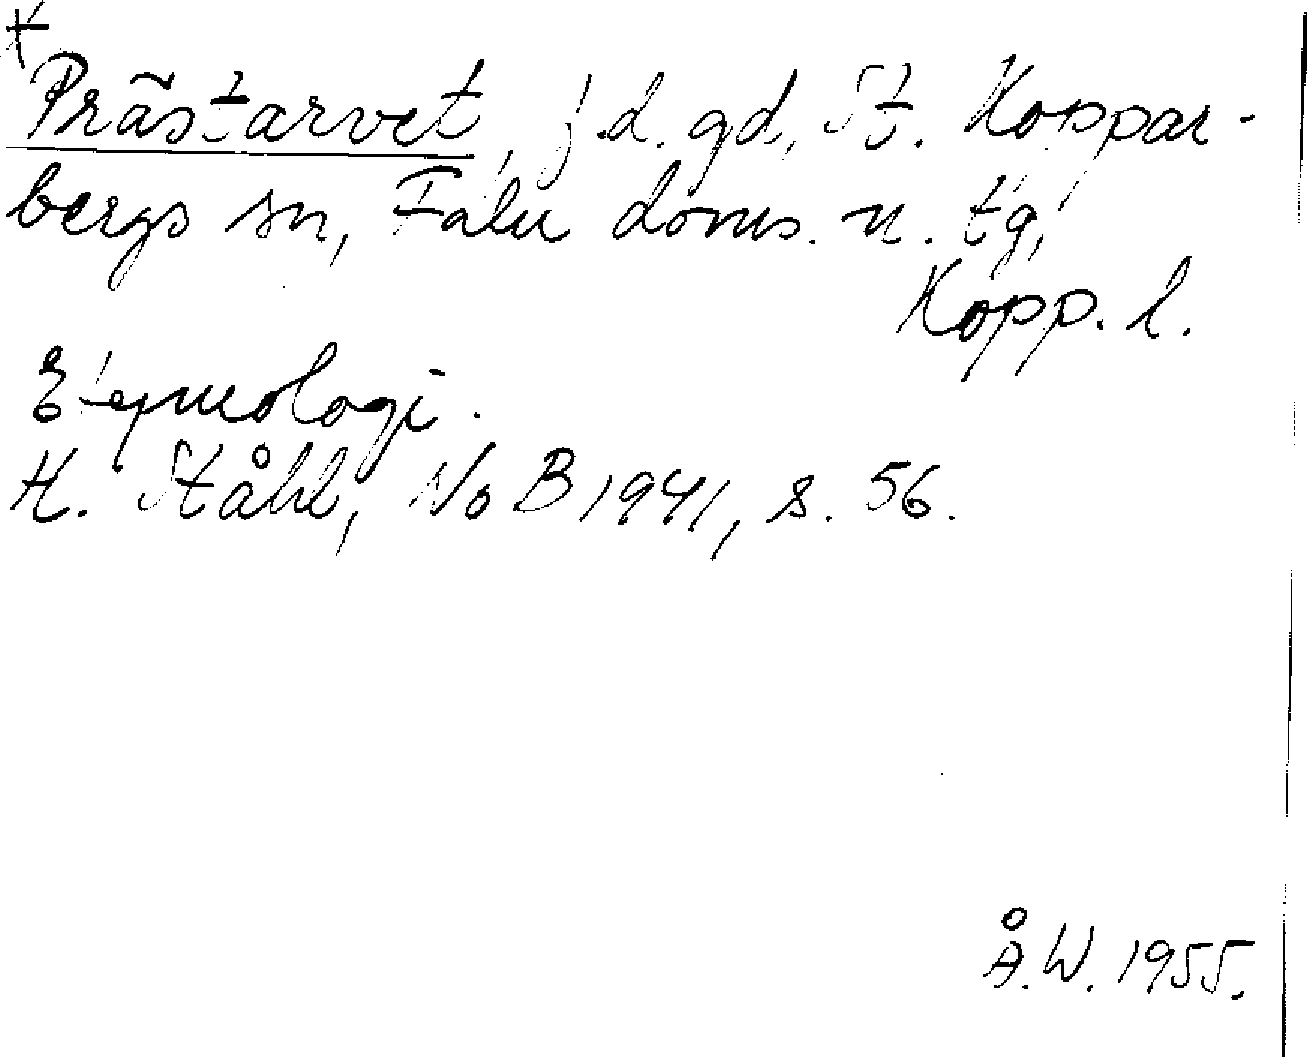 †
Prästarvet, j.d. gd, St. Koppar-
bergs sn, Falu doms. n. tg,
Kopp. l.
Etymologi.
H. Ståhl, NoB 1941, s. 56.
Å.W. 1955.